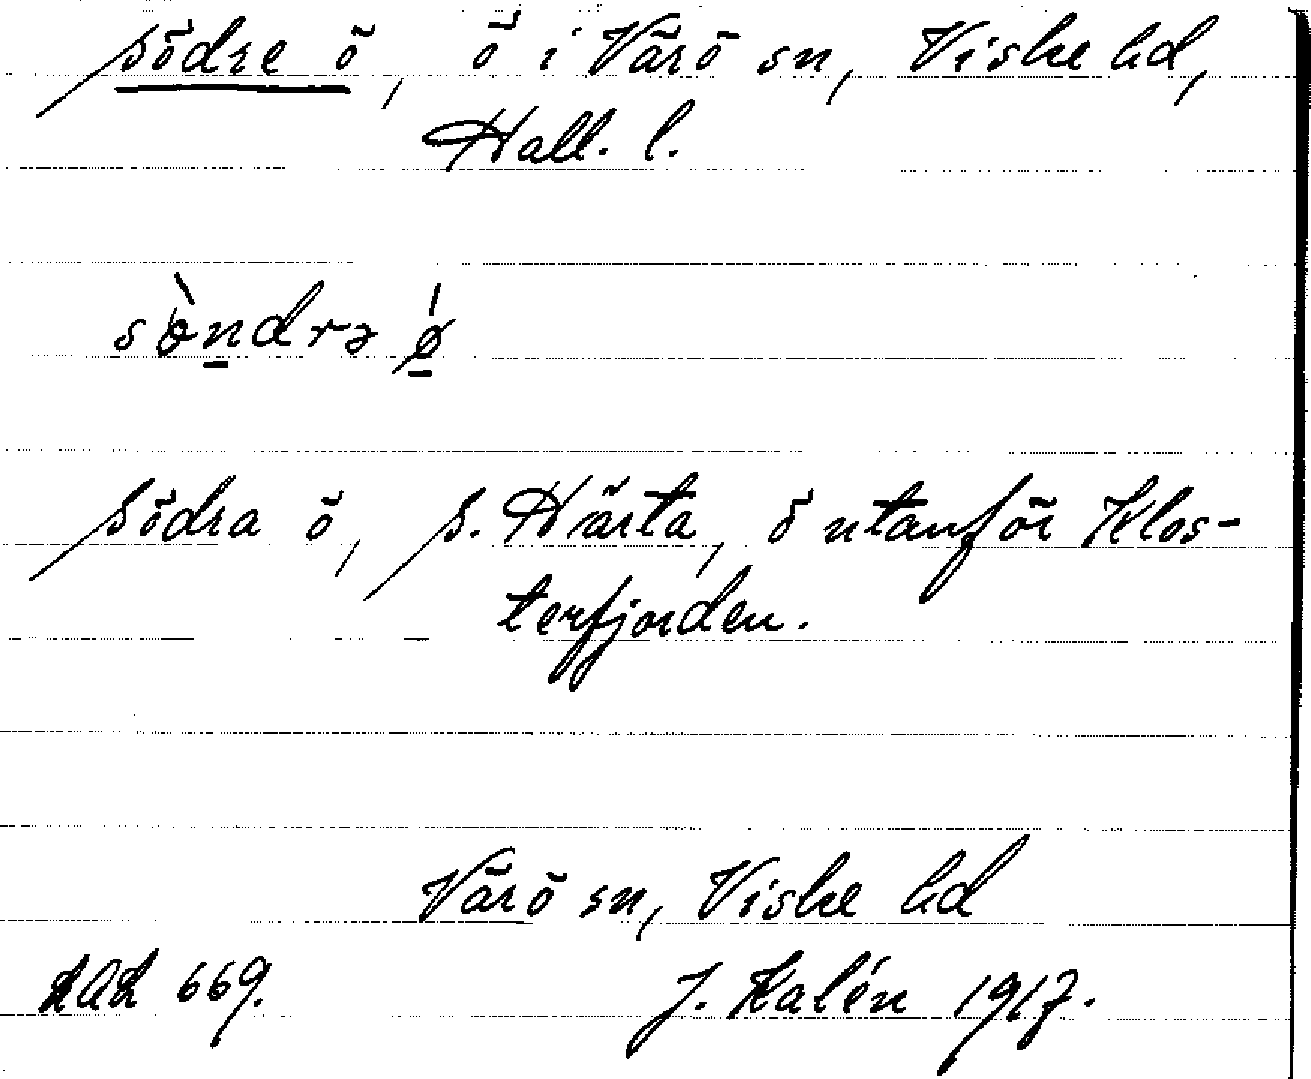 södre ö, ö i Värö sn, Viske hd,
Hall. l.
sø̀ndrə ǿ
Södra ö, S. Härta, ö utanför Klos-
terfjorden.
Värö sn, Viske hd
LAL 669. J. Kalén 1917.